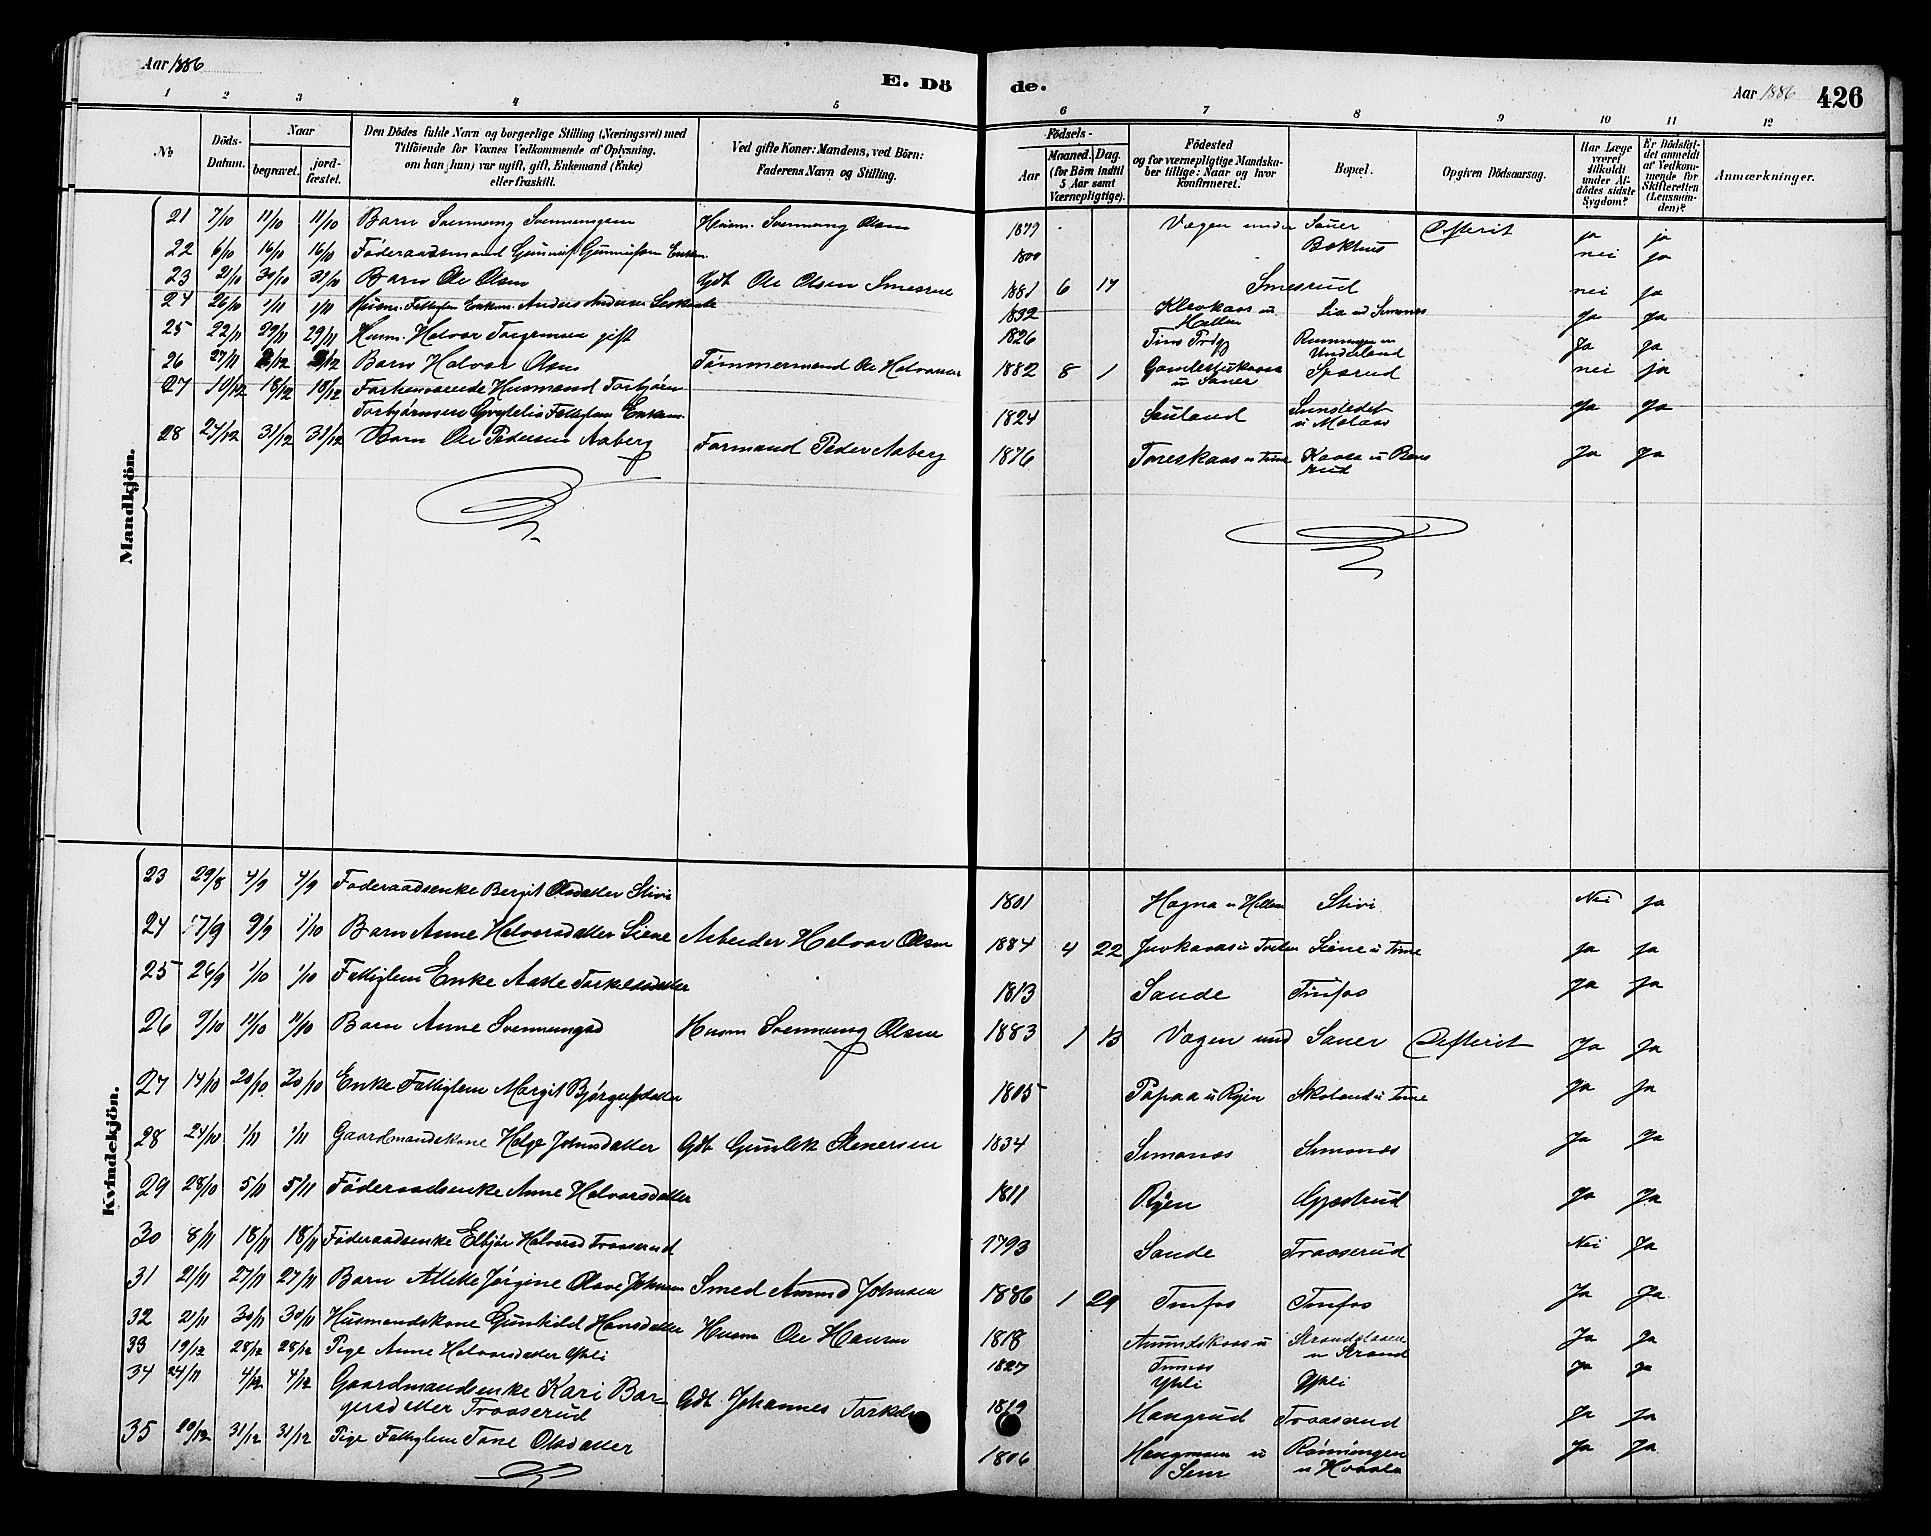 Aar 1886
E. Dö
de.
Aar 1886
426
1 2 3 4 5 6 7 8 9 10 11 12
No
Döds-
Datum.
Naar
begravet.
jord-
fæstet.
Den Dödes fulde Navn og borgerlige Stilling (Næringsvei) med
Tilföiende for Voxnes Vedkommende af Oplysning,
om han (hun) var ugift, gift, Enkemand (Enke)
eller fraskilt.
Ved gifte Koner: Mandens, ved Börn:
Faderens Navn og Stilling.
Födsels-
Aar
Maaned. Dag.
(for Börn indtil
5 Aar samt
Værnepligtige).
Födested
og for værnepligtige Mandska-
ber tillige: Naar og hvor
konfirmeret.
Bopæl.
Opgiven Dödsaarsag.
Har Læge
været
tilkaldt
under Af-
dödes sidste
Sygdom?
Er Dödsfal-
det anmeldt
af Vedkom-
mende for
Skifteretten
(Lensman-
den)?
Anmærkninger.
Mandkjön.
21 7/10 11/10 11/10 Barn Svennung Svennungsen Husm. Svennung Olsen 1879 Vegen under Sauer Difterit ja ja
22 6/10 16/10 16/10 Föderaadsmand Gunnuf Gunnufsen Enkem. 1800 Bakhus nei ja
23 21/10 30/10 31/10 Barn Ole Olsen Gdb Ole Olsen Smesrue 1881 6 17 Smesrud nei ja
24 26/10 1/11 1/11 Husm. Fattiglem Enkem. Anders Andersen 1832 Klevkaas u
Ja Ja
25 22/11 29/11 29/11 Husm. Halvor Torgersen gift 1826 Tins Prdg
Underland Ja Ja
26 27/11 2/12 2/12 Barn Halvor Olsen Tömmermand Ole Halvorsen 1882 8 1
u Sauer Sparud nei ja
27 10/12 18/12 18/12 Forhenværende Husmand Torbjørn
Torbjørnsen Fattiglem Enkem. 1824 Sauland
Ja Ja
28 24/12 31/12 31/12 Barn Ole Pedersen Aaberg Formand Peder Aaberg 1876 Toreskaas u Tinne Kaasa u
rud Ja Ja
Kvindekjön.
23 29/8 4/9 4/9 Föderaadsenke Bergit Olsdatter Stivi 1801 Hogna u Stivi Nei Ja
24 17/9 9/9 1/10 Barn Anne Halvorsdatter Siene Arbeider Halvor Olsen 1884 4 22 Juvkaas u Siene u Tinne Ja Ja
25 26/9 1/10 1/10 Fattiglem Enke Aaste Torkelsdatter 1813 Sande Tinfos Ja Ja
26 9/10 11/10 11/10 Barn Anne Svennungsd Husm Svennung Olsen 1883 1 13 Vogen und Sauer Difterit Ja Ja
27 14/10 20/10 20/10 Enke Fattiglem Margit Bjørgufsdatter 1805 Papaa u Ryen Skoland u Tinne Ja Ja
28 24/10 1/11 1/11 Gaardmandskone Helge Johnsdatter Gdb Gunlek Stenersen 1834 Semonos Semonos Ja Ja
29 28/10 5/11 5/11 Föderaadsenke Anne Halvorsdatter 1811 Ryen Ja Ja
30 8/11 18/11 18/11 Föderaadsenke Elbjør Halvorsd Traaserud 1793 Sande Traaserud Nei Ja
31 21/11 27/11 27/11 Barn Jørgine Olave Johnsen Smed Amund Johnsen 1886 1 29 Tinfos Tinfos Ja Ja
32 21/11 30/11 30/11 Husmandskone Gunhild Hansdatter Husm Ole Hansen 1818 Amundskaas u
u Strand Ja Ja
33 19/12 28/12 28/12 Pige Anne Halvorsdatter Ypli 1827
Ypli Ypli Ja Ja
34 24/11 4/12 4/12 Gaardmandsenke Kari Bor-
gersdatter Traaserud Gdb Johannes 1819 Haugrud Traaserud Ja Ja
35 20/12 31/12 31/12 Pige Fattiglem Tone Olsdatter 1806 Haugmoen u
Sem Rønningen
Ja Ja